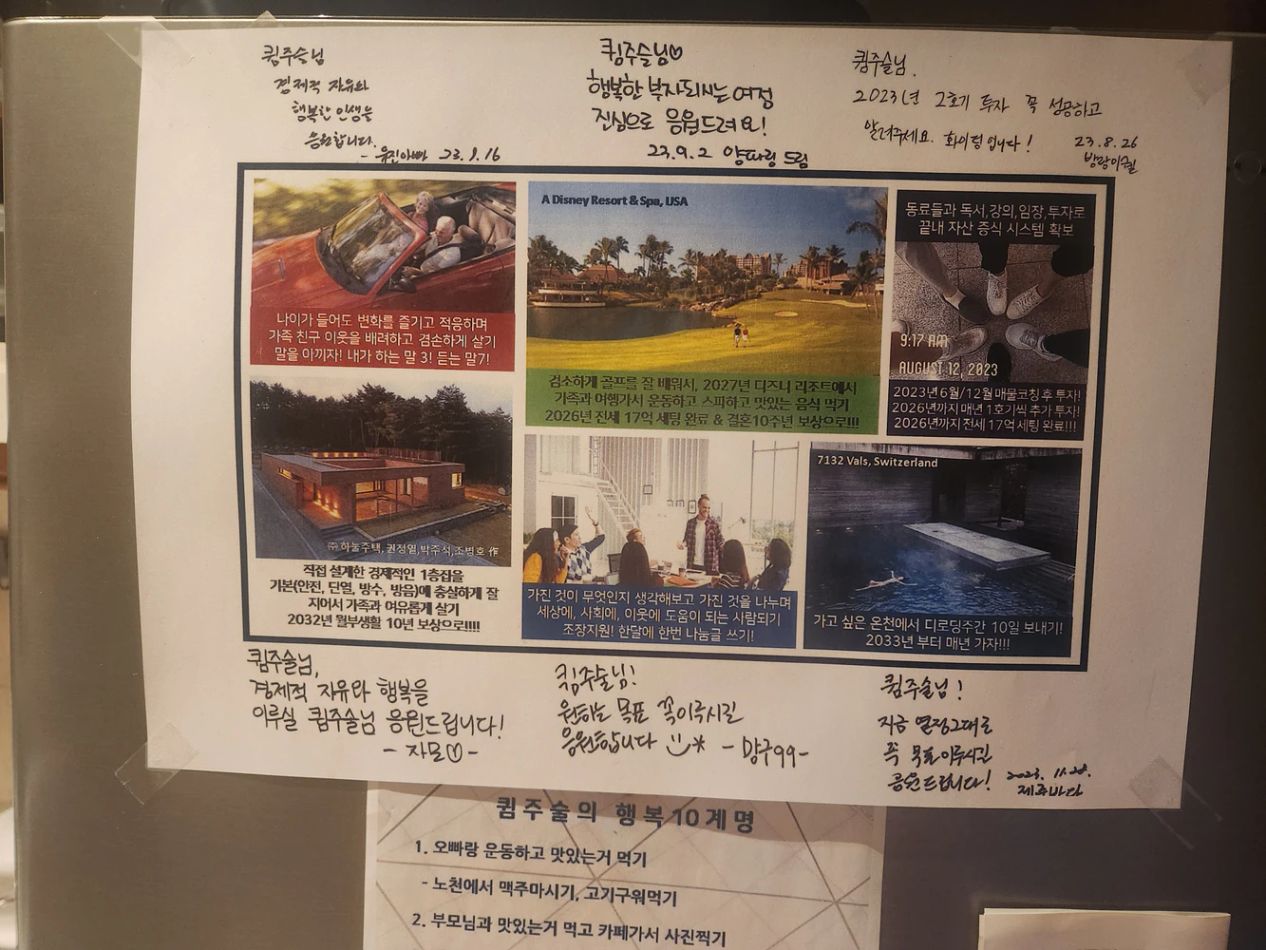 큄주슬님
경제적 자유와
행복한 인생을
응원합니다.
- 유진아빠 23.9.16
큄주슬님♡
행복한 부자되시는 여정
진심으로 응원드려요!
23.9.2 양파링 드림
큄주슬님.
2023년 2호기 투자 꼭 성공하고
알려주세요. 화이팅입니다!
23.8.26
A Disney Resort & Spa, USA
동료들과 독서,강의,임장,투자로
끝내 자산 증식 시스템 확보
9:17 AM
AUGUST 12, 2023
나이가 들어도 변화를 즐기고 적응하며
가족 친구 이웃을 배려하고 겸손하게 살기
말을 아끼자! 내가 하는 말 3! 듣는 말7!
검소하게 골프를 잘 배워서, 2027년 디즈니 리조트에서
가족과 여행가서 운동하고 스파하고 맛있는 음식 먹기
2026년 전세 17억 세팅 완료 & 결혼10주년 보상으로!!!
2023년 6월/12월 매물코칭 후 투자!
2026년까지 매년 1호기씩 추가 투자!
2026년까지 전세 17억 세팅 완료!!!
㈜ 하눌주택, 권정열,박주석,조병호 作
직접 설계한 경제적인 1층집을
기본(안전, 단열, 방수, 방음)에 충실하게 잘
지어서 가족과 여유롭게 살기
2032년 월부생활 10년 보상으로!!!!
가진 것이 무엇인지 생각해보고 가진 것을 나누며
세상에, 사회에, 이웃에 도움이 되는 사람되기
조장지원! 한달에 한번 나눔글 쓰기!
7132 Vals, Switzerland
가고 싶은 온천에서 디로딩주간 10일 보내기!
2033년 부터 매년 가자!!!
큄주술님,
경제적 자유와 행복을
이루실 큄주술님 응원드립니다!
- 자모♡ -
큄주술님!
원하는 목표 꼭이루시길
응원합니다
- 망구99 -
큄주술님!
지금 열정그대로
꼭 목표이루시길
응원드립니다! 2023. 11.28.
제주바다
큄주술의 행복10계명
1. 오빠랑 운동하고 맛있는거 먹기
- 노천에서 맥주마시기, 고기구워먹기
2. 부모님과 맛있는거 먹고 카페가서 사진찍기